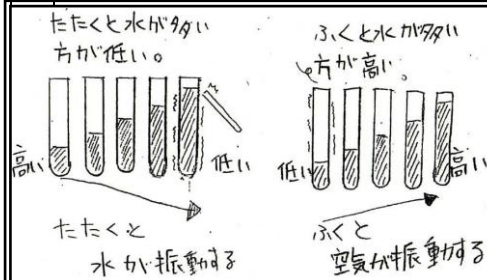 たたくと水が多い
方が低い。
高い
低い
たたくと
水が振動する
ふくと水が多い
方が高い。
低い
高い
ふくと
空気が振動する